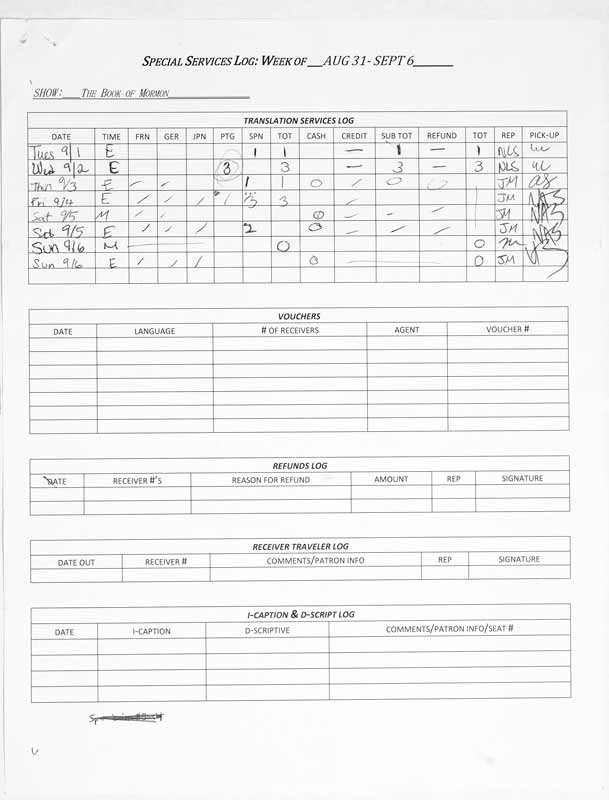 SPECIAL SERVICES LOG: WEEK OF __AUG 31- SEPT 6______
SHOW:___THE BOOK OF MORMON
TRANSLATION SERVICES LOG
DATE TIME FRN GER JPN PTG SPN TOT CASH CREDIT SUB TOT REFUND TOT REP PICK-UP
Tues 9/1 E 1 1 — 1 — 1 NLS
Wed 9/2 E 3 3 — 3 — 3 NLS
Thu 9/3 E – – 1 1 0 – 0 0 JM
Fri 9/4 E / / / / 3 3 JM NAS
Sat 9/5 M / / 0 – – – JM NAS
Sat 9/5 E / / / / 2 0 – / / JM NAS
Sun 9/6 M 0 0
Sun 9/6 E / / / 0 0 JM
VOUCHERS
DATE LANGUAGE # OF RECEIVERS AGENT VOUCHER #
REFUNDS LOG
DATE RECEIVER #'S REASON FOR REFUND AMOUNT REP SIGNATURE
RECEIVER TRAVELER LOG
DATE OUT RECEIVER # COMMENTS/PATRON INFO REP SIGNATURE
I-CAPTION & D-SCRIPT LOG
DATE I-CAPTION D-SCRIPTIVE COMMENTS/PATRON INFO/SEAT #